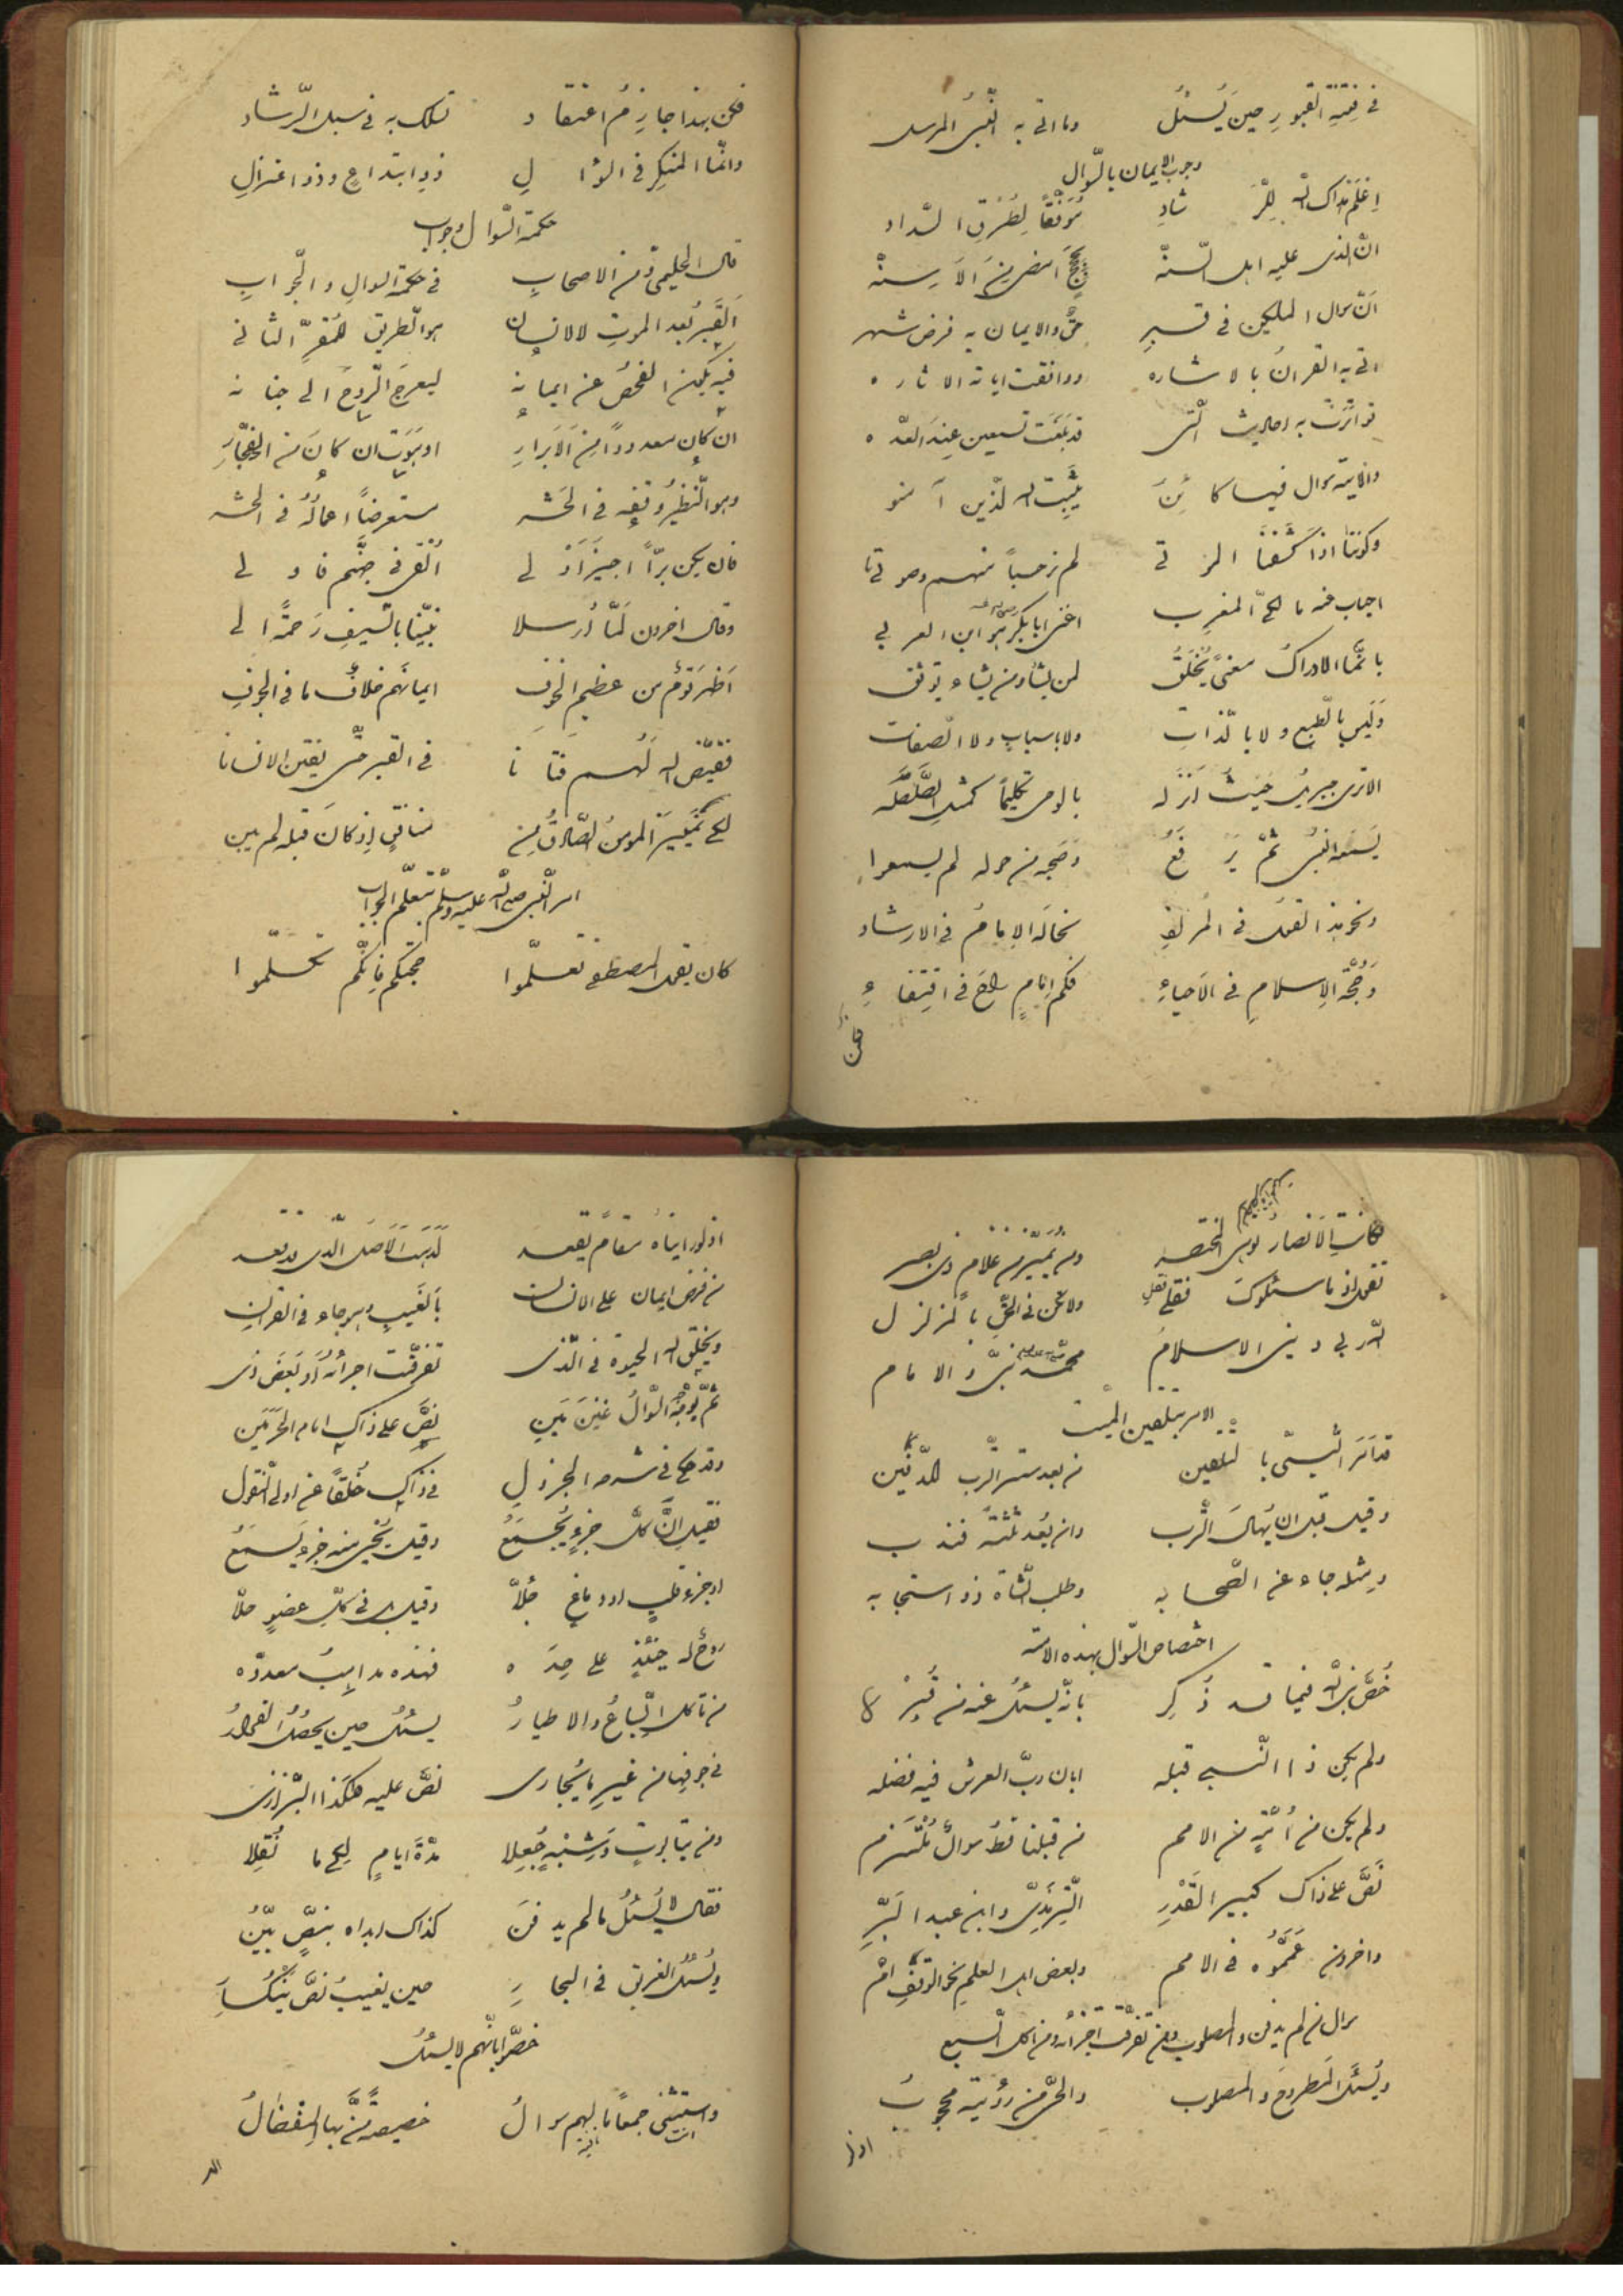 في فتنة القبور حين يسئل وما اتى به النبي المرسل
وجوب الايمان بالسؤال
اعلم هداك الله للرشاد موفقا لطرق السداد
ان الذي عليه اهل السنة امضى من الاسنة
ان سوال الملكين في حق والايمان به فرض شهر
اتى به القران بالاشاره ووافقت اياته الاثاره
تواترت به احاديث التي قد بلغت سبعين عند العده
والاية سوال فيها كائن يثبت الله الذين آمنو
وكوننا اذا كشفنا الموتى لم نر حسا منهم وصوتا
اجاب عنه مالكي المغرب اعني ابا بكر هو ابن العربي
بانما الادراك معنى يخلق لمن يشا ومن يشاء يوثق
وليس بالطبع ولا بالذات ولا باسباب ولا الصفات
الا ترى جبريل حيث انزله بالوحي تكليما كمثل الصلصله
يسمعه النبي ثم يرفع وصحبه من حوله لم يسمعوا
ونحو هذا القول في نحا له الامام في الارشاد
وحجة الاسلام في الاحياء فكم امام لاح في اقتفاء
فكن
فكن بهذا جازم اعتقاد تسلك به في سبل الرشاد
وانما المنكر في السؤال ذو ابتداع وذو اعتزال
حكمة السؤال وجوابه
قال الحليمي من الاصحاب في حكمة السوال والجواب
القبر بعد الموت للانسان هو الطريق للمقر الثاني
فيه يكون الفحص عن ايمانه ليعرج الروح الى جنانه
ان كان معدودا من الابرار او يوبق ان كان من الفجار
وهو النظير وقفه في الحشر مستعرضا اعماله في الحشر
فان يكن برا اجيز او لى القي في جهنم فاولى
وقال اخرون لما ارسلا نبينا بالسيف رحمة الى
اظهر قوم من عظيم الخوف ايمانهم خلاف ما في الجوف
فقيض الله لهم فتانا في القبر حتى يفتن الانسانا
لكي تميز المومن الصادق من منافق اذ كان قبله لم يبن
امر النبي صلى الله عليه وسلم بتعلم الجواب
كان يقول المصطفى تعلموا حجتكم فانكم تكلموا
وكانت الانصار توصي المحتضر ومن يميز من غلام ذي بصر
تقول اذ ما سئلوك فقل ولا تكن في الحق بالمزلزل
الله ربي ديني الاسلام محمد نبي والامام
الامر بتلقين الميت
قد امر النبي بالتلقين من بعد ستر الترب للدفين
وقيل قبل ان يهال الترب وان يعد ثلثة فندب
ومثله جاء عن الصحابه وطلب الثبات ذو استجابه
اختصاص السوال بهذه الامة
خص نبي الله فيما قد ذكر بانه يسئل عنه من قبر
ولم يكن ذا النبي قبله ابان رب العرش فيه فضله
ولم يكن من امة من الامم من قبلنا قط سوال ملتزم
نص على ذاك كبير القدر الترمذي وابن عبد البر
واخرون عمموه في الامم وبعض اهل العلم نحو الوقف ام
سوال من لم يدفن والمصلوب ومن تفرقت اجزاؤه ومن اكل السبع
ويسئل المطروح والمصلوب والحي من رؤيته محجوب
اذ لو رايناه مقام يقعد
من فرض ايمان على الانسان بالغيب وهو جاء في القران
ويخلق الله الحيوة في الذي تفرقت اجزاؤه او بعض ذي
ثم يوجه السوال غير مين نص على ذاك امام الحرمين
وقد حكى في شرحه الجزولي في ذاك خلفا عن اولي النقول
فقيل ان كل جزء يجمع وقيل يحيى منه جزء يسمع
او جزء قلب او دماغ جلا وقيل بل في كل عضو حلا
روح له حينئذ على حده فهذه مذاهب معدده
من تاكل السباع والاطيار يسئل حين يحصل القرار
في جوفها من غير ما يجارى نص عليه هكذا البزازى
ومن بتابوت وشبهه جعلا مدة ايام لكي ما نقلا
فقال لا يسئل ما لم يدفن كذاك ابداه بنص بين
ويسئل الغريق في البحار حين يغيب نص
خصوا بانهم لا يسئل
واستثني جمعا ما لهم سوال خصيصة من بها المفضال